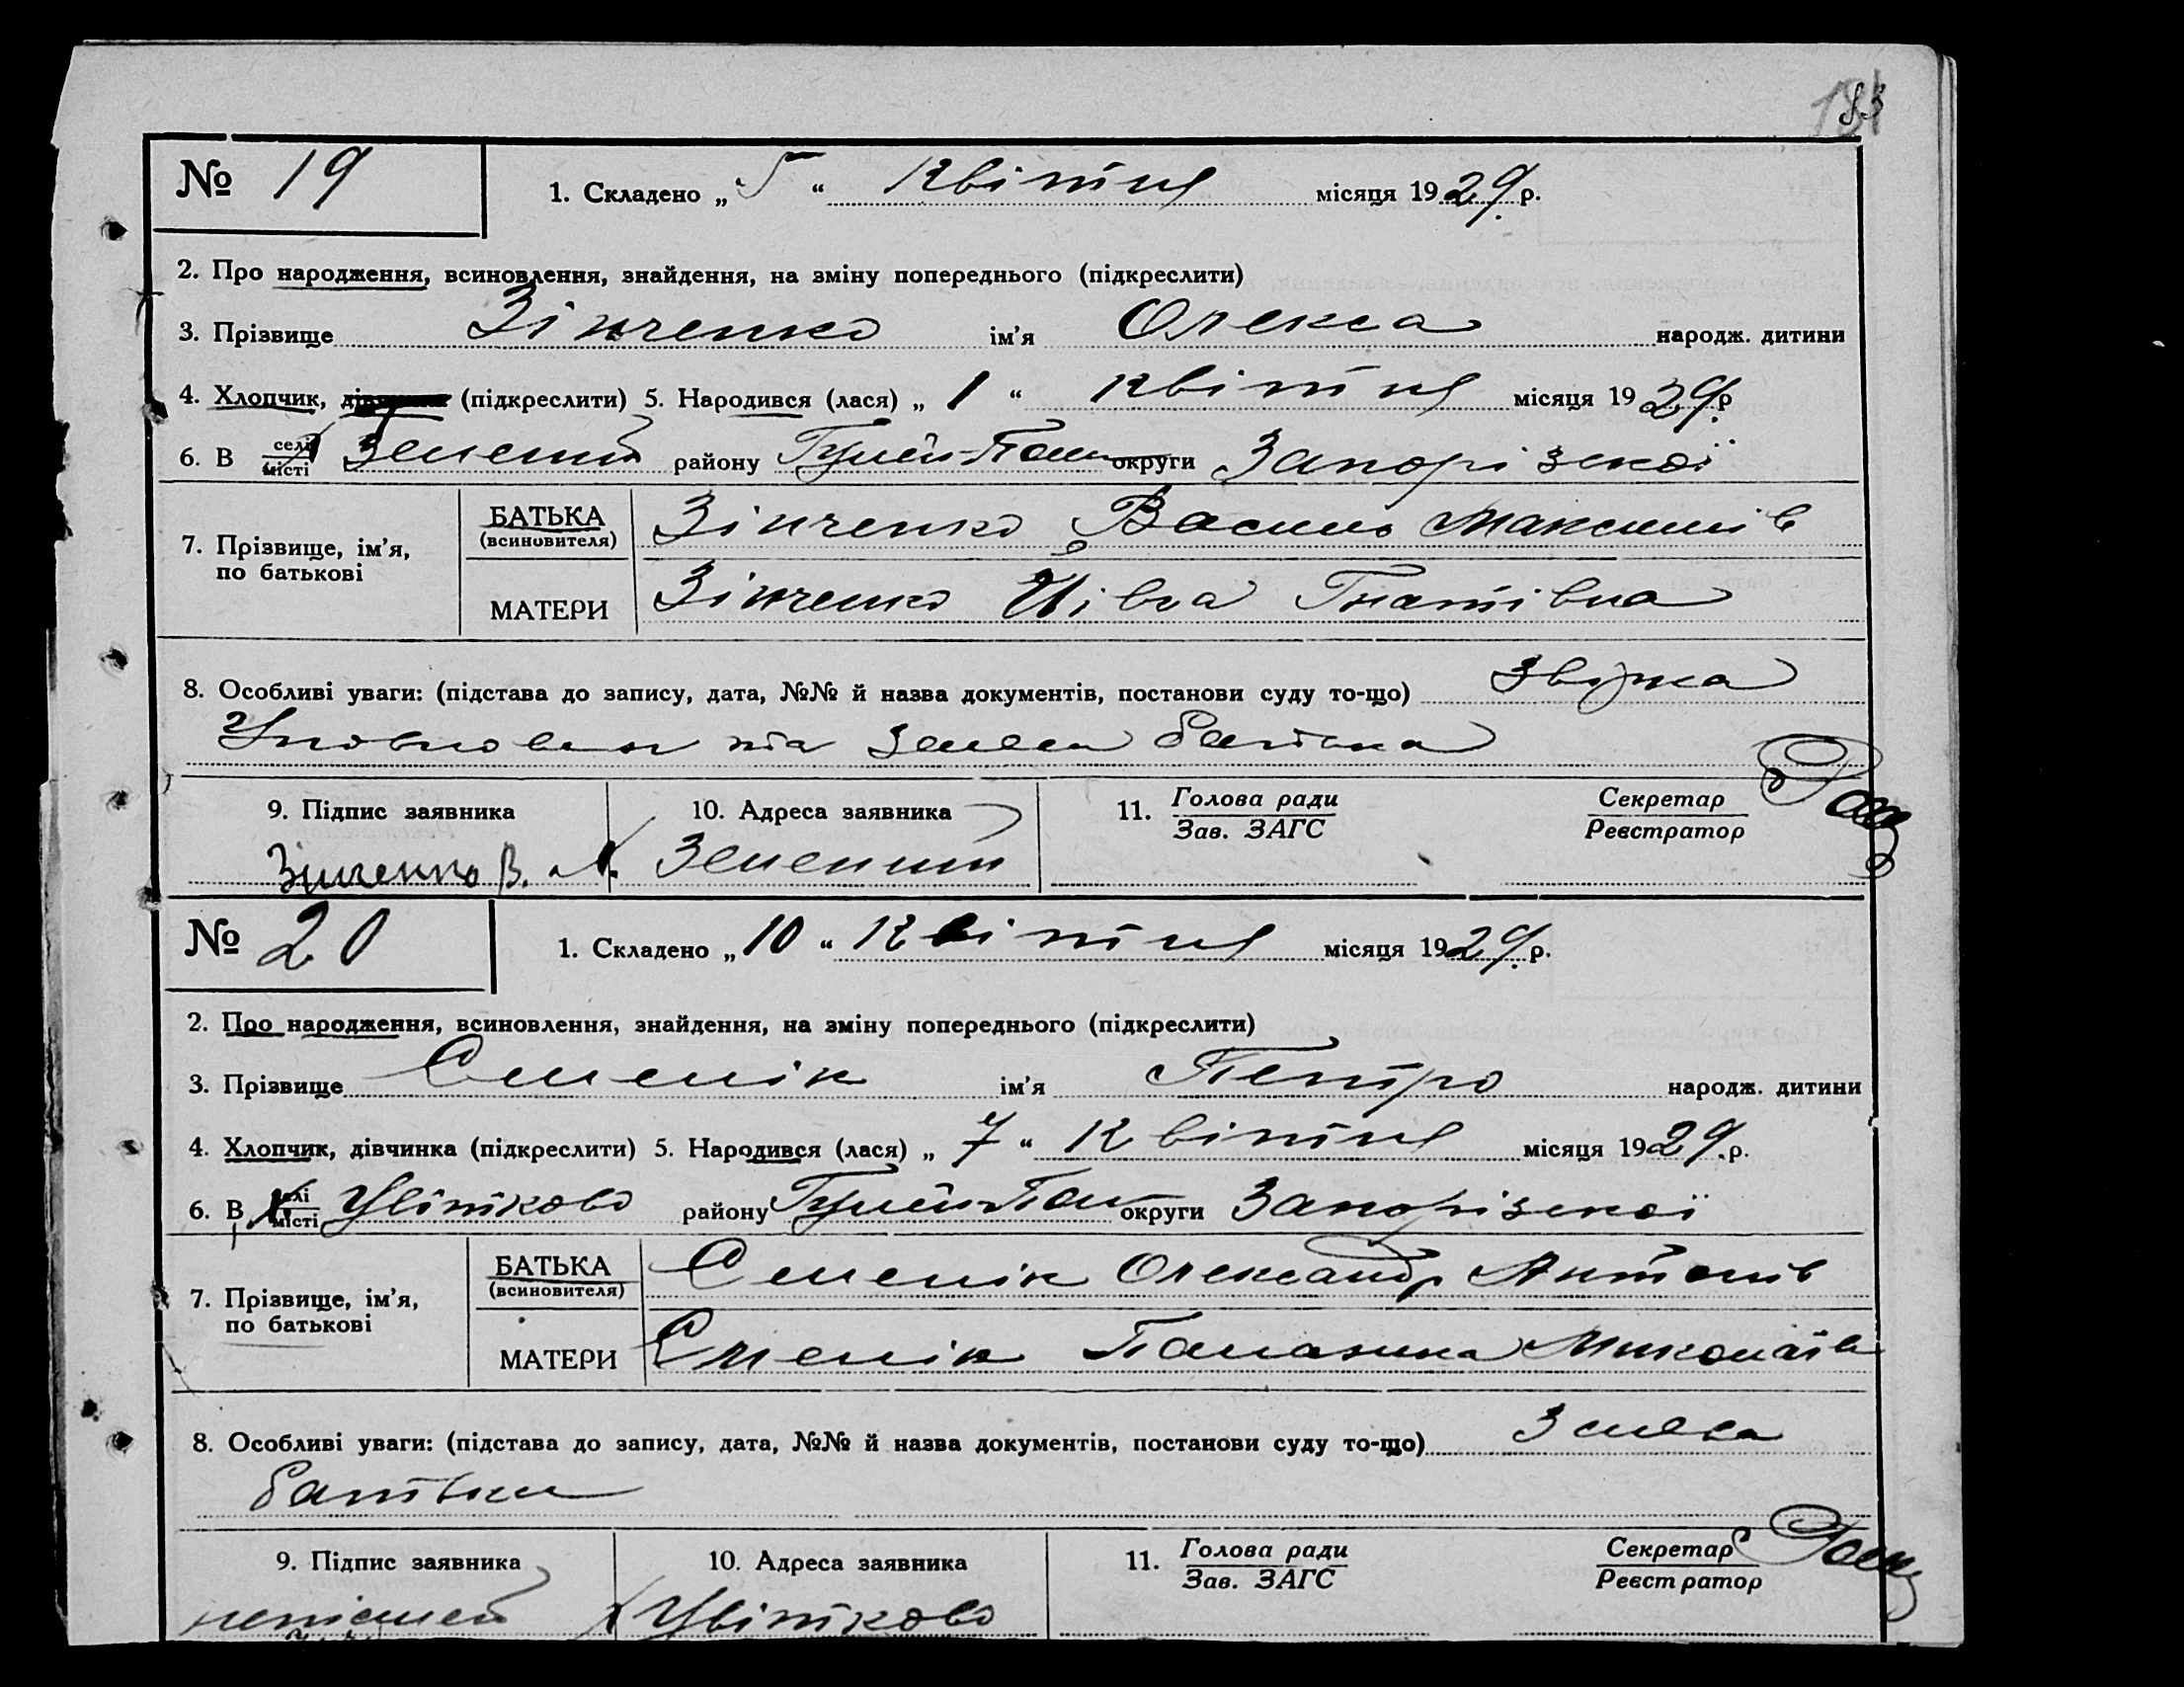 83
№ 19 1. Складено „ 5 “ Квітня місяця 1929 р.
2. Про народження, всиновлення, знайдення, на зміну попереднього (підкреслити)
3. Прізвище Зінченко ім’я Олекса народж. дитини
4. Хлопчик, дівчинка (підкреслити) 5. Народився (лася) „ 1 “ Квітня місяця 1929 р
6. В селі місті Зелений району Гуляй-Пол округи Запорізкої
7. Прізвище, ім’я, по батькові БАТЬКА (всиновителя) Зінченко Василь Максимів
МАТЕРИ Зінченко Гнатівна
8. Особливі уваги: (підстава до запису, дата, №№ й назва документів, постанови суду то-що)
та заява батька
9. Підпис заявника 10. Адреса заявника 11. Голова ради Секретар
Зав. ЗАГС Реєстратор
Зінченко В. М. Зелений
№ 20 1. Складено „ 10 “ Квітня місяця 1929 р.
2. Про народження, всиновлення, знайдення, на зміну попереднього (підкреслити)
3. Прізвище Семенік ім’я Петро народж. дитини
4. Хлопчик, дівчинка (підкреслити) 5. Народився (лася) „ 7 “ Квітня місяця 1929 р.
6. В селі місті Цвітково району Гуляй-Пол округи Запорізкої
7. Прізвище, ім’я, по батькові БАТЬКА (всиновителя) Семенік Олександр Антонів
МАТЕРИ Семенік Миколаїв
8. Особливі уваги: (підстава до запису, дата, №№ й назва документів, постанови суду то-що) Заява
батьки
9. Підпис заявника 10. Адреса заявника 11. Голова ради Секретар
Зав. ЗАГС Реєстратор
Цвітково